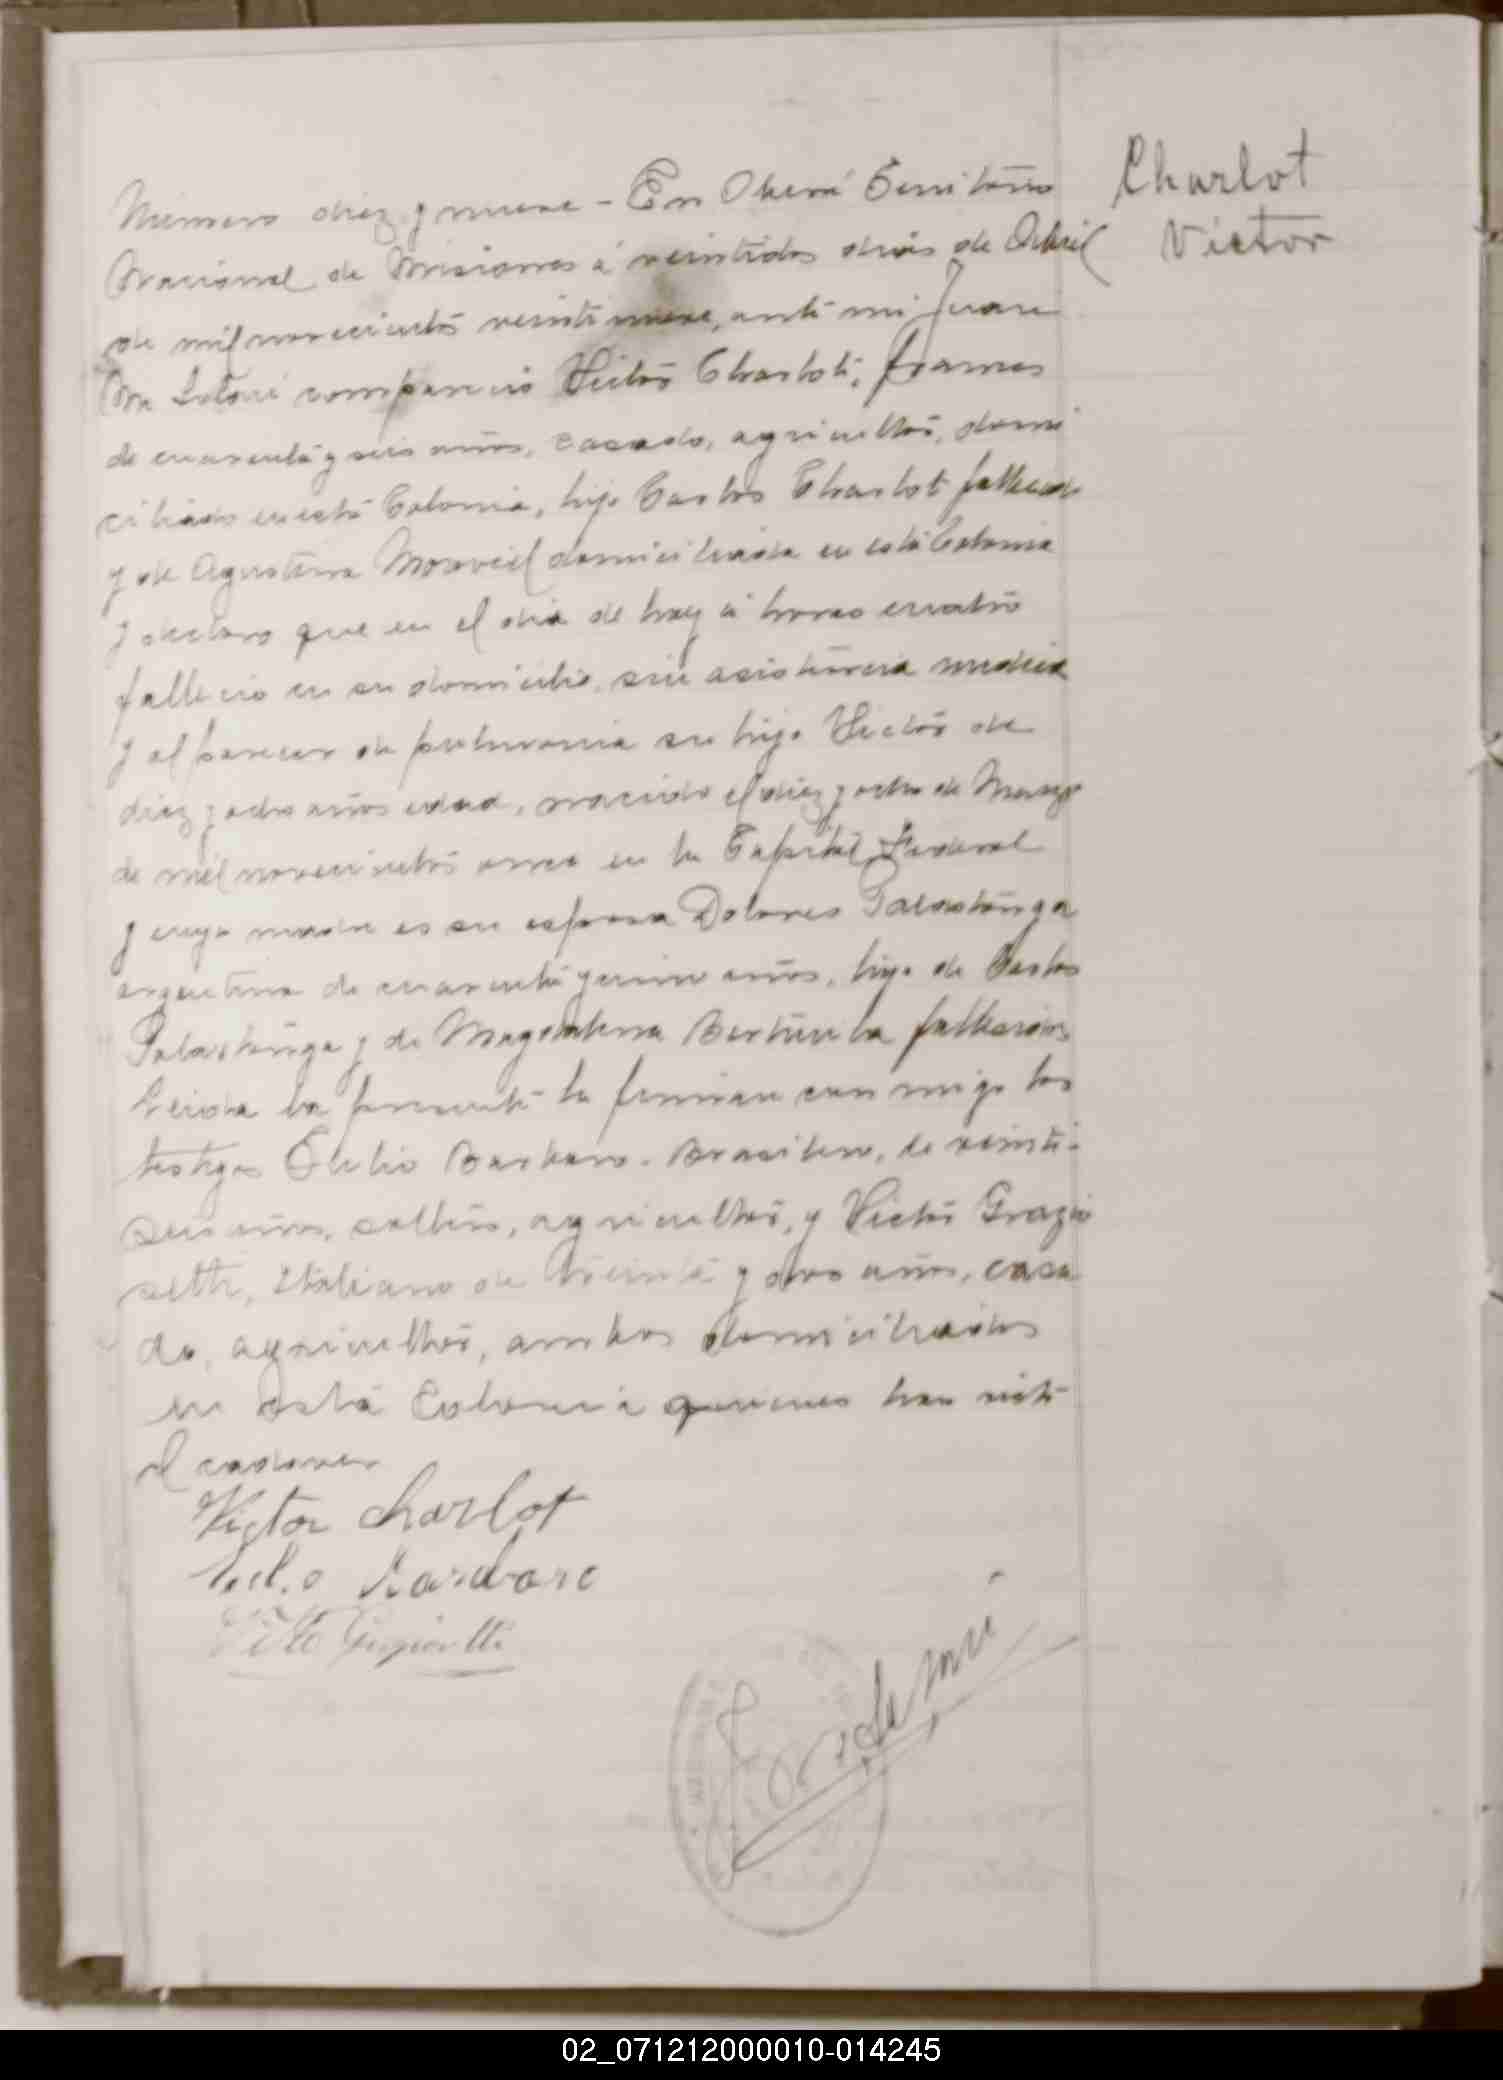 Charlot
Victor
Número diez y nueve - En Oberá Territorio
Nacional de Misiones á veintidos dias de Abril
de mil novecientos veintinueve, ante mi Juan
comparecio Victor Charlot, frances
de cuarenta y seis años, casado, agricultor, domi
ciliado en esta Colonia, hijo Carlos Charlot fallecido
y de Agustina domiciliada en esta Colonia
y declaro que en el dia de hoy á horas cuatro
fallecio en su domicilio, sin asistencia medica
y al parecer de pulmonia su hijo Victor de
diez y ocho años edad, nacido el diez y ocho de Marzo
de mil novecientos once en la Capital Federal
y cuya madre es su esposa Dolores Palastanga
argentina de cuarenta y cinco años, hija de Carlos
Palastanga y de Magdalena fallecidos
Leida la presente la firman conmigo los
testigos Barbaro - Brasilero, de veinti-
seis años, soltero, agricultor, y Victor Grazio
setti, Italiano de treinta y dos años, casa
do, agricultor, ambos domiciliados
en está Colonia quienes han visto
el cadaver
Victor Charlot
Barbaro
02_071212000010-014245